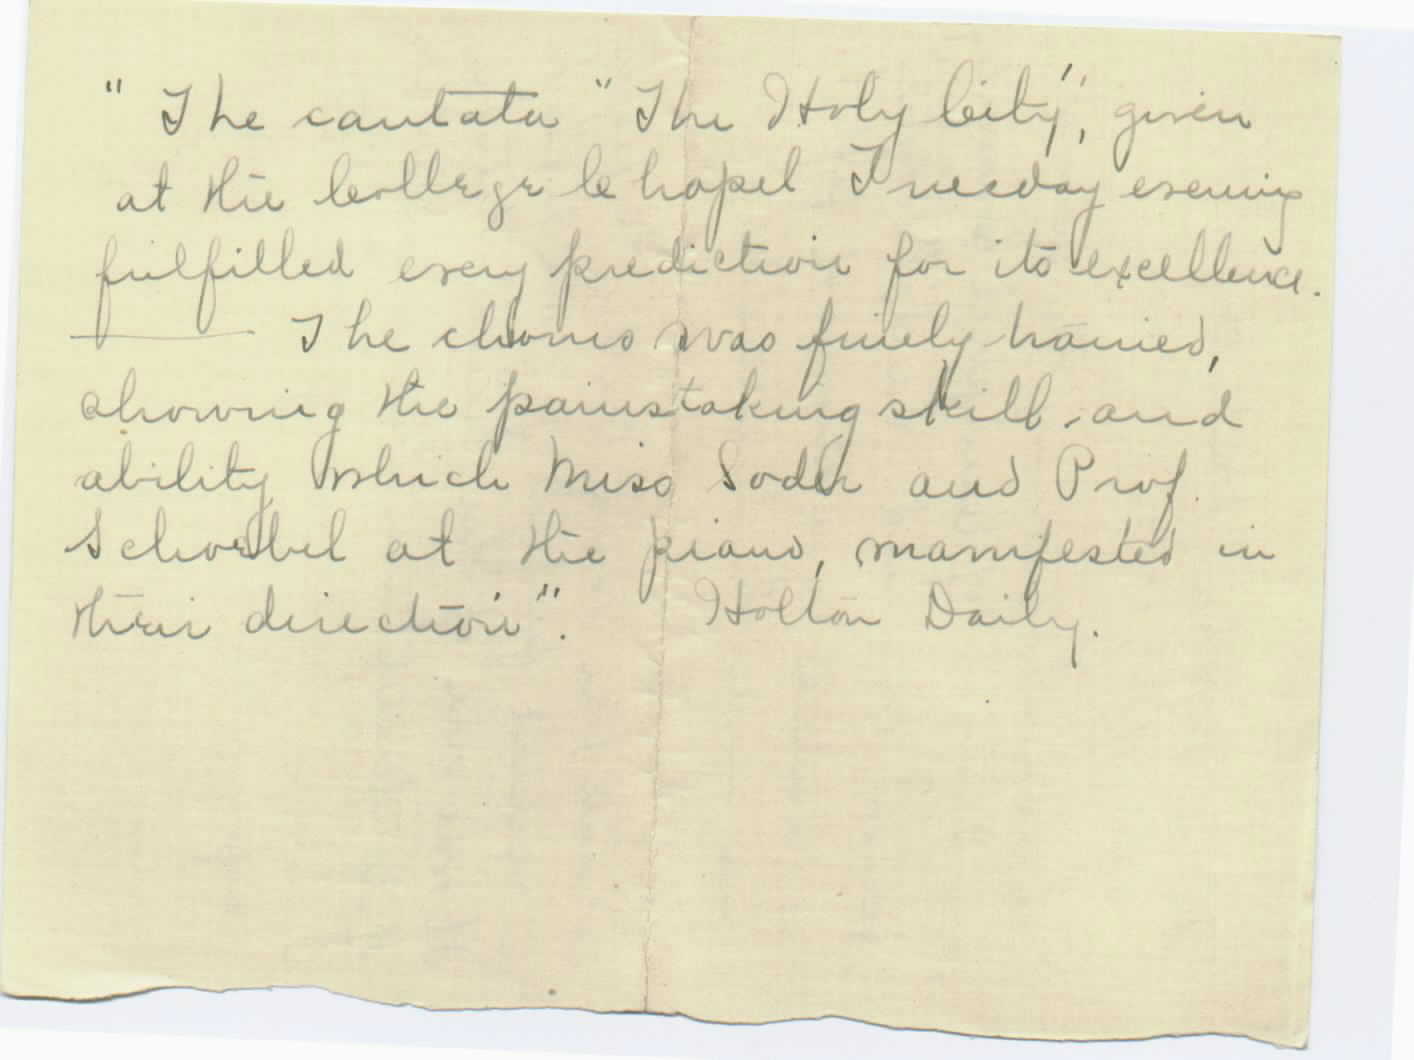 " The cantata "The Holy City", given
at the College Chapel Tuesday evening
fulfilled every prediction for its excellence.
—— The chorus was finely trained,
showing the painstaking skill and
ability which Miss Soder and Prof.
Schoebel at the piano, manifested in
their direction".     Holton Daily.